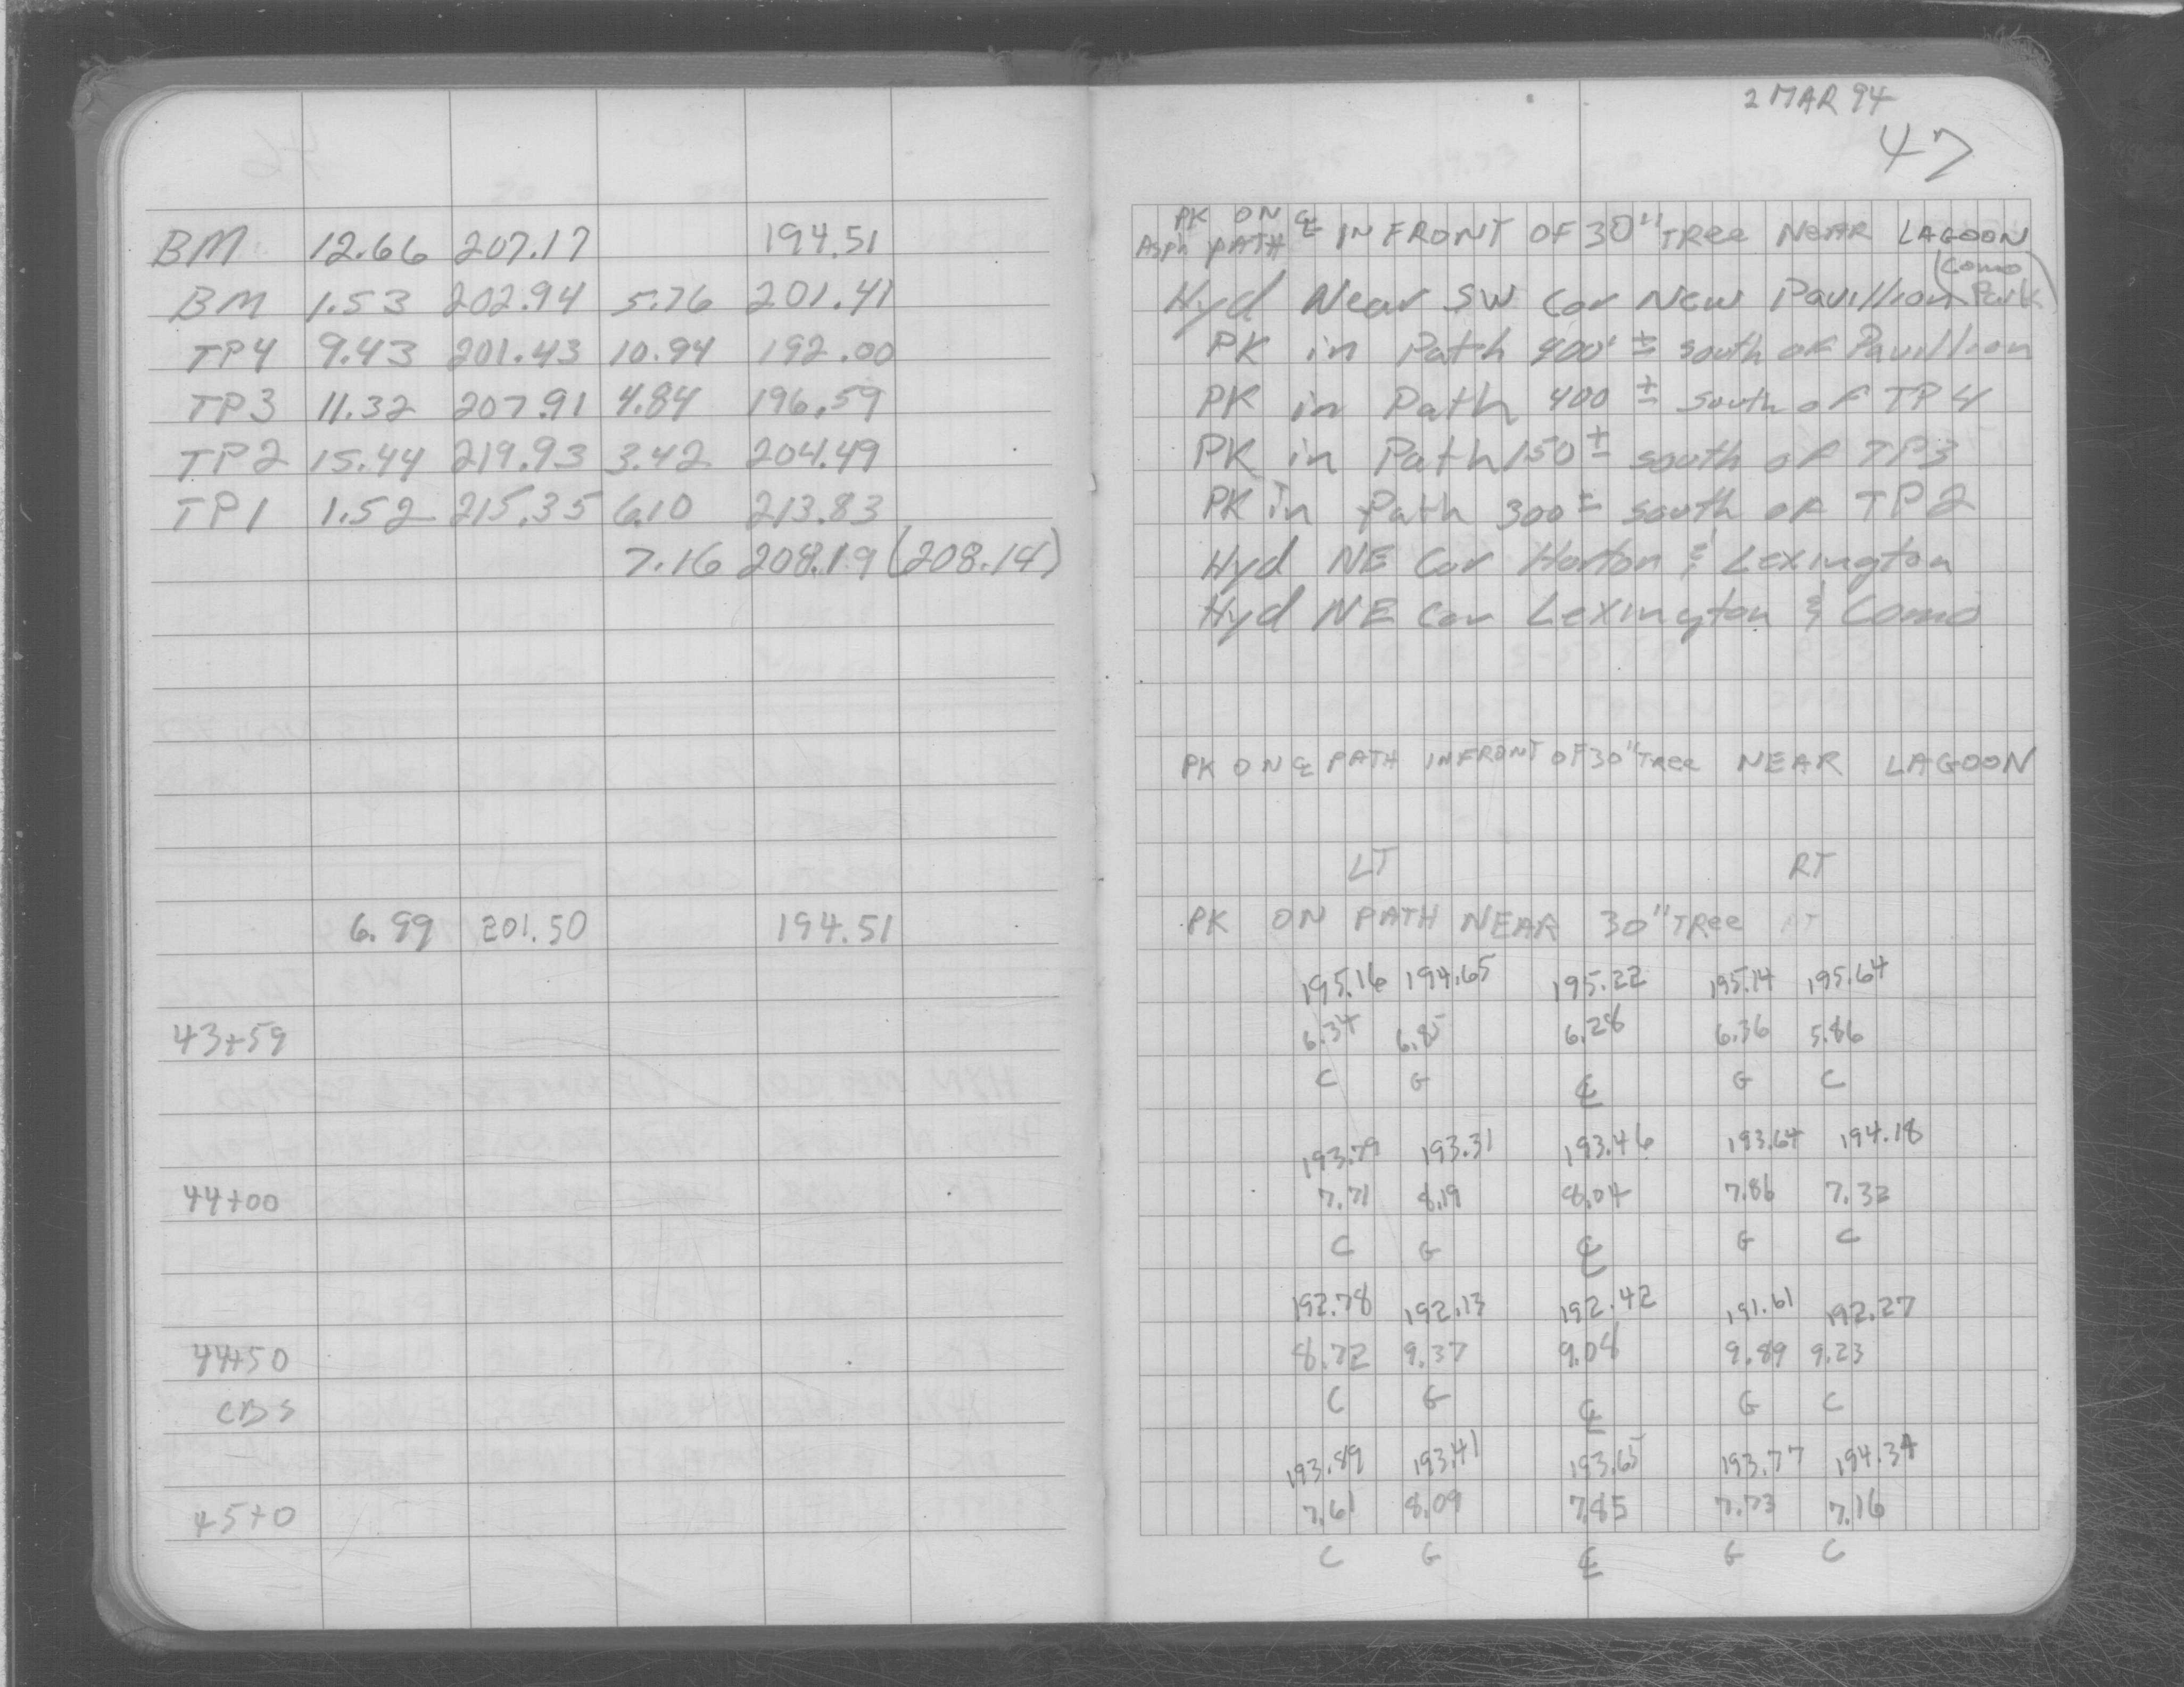 2 MAR 94
47
BM 12.66 207.17 194.51 PK ON ℄ IN FRONT OF 30" TREE NEAR LAGOON
Asph PATH
(Como Park)
BM 1.53 202.94 5.76 201.41 Hyd Near SW Cor New Pavillion
TP4 9.43 201.43 10.94 192.00 PK in Path 400' ± south of Pavillion
TP3 11.32 207.91 4.84 196.59 PK in Path 400 ± south of TP4
TP2 15.44 219.93 3.42 204.49 PK in Path 150 ± south of TP3
TP1 1.52 215.35 6.10 213.83 PK in Path 300 ± south of TP2
7.16 208.19 (208.14) Hyd NE Cor Horton & Lexington
Hyd NE Cor Lexington & Como
PK ON ℄ PATH IN FRONT OF 30" TREE NEAR LAGOON
LT RT
6.99 201.50 194.51 PK ON PATH NEAR 30" TREE RT
195.16 194.65 195.22 195.14 195.64
43+59 6.34 6.85 6.28 6.36 5.86
C G ℄ G C
193.79 193.31 193.46 193.64 194.18
44+00 7.71 8.19 8.04 7.86 7.32
C G ℄ G C
192.78 192.13 192.42 191.61 192.27
44+50 8.72 9.37 9.08 9.89 9.23
CBS C G ℄ G C
193.89 193.41 193.65 193.77 194.34
45+0 7.61 8.09 7.85 7.73 7.16
C G ℄ G C